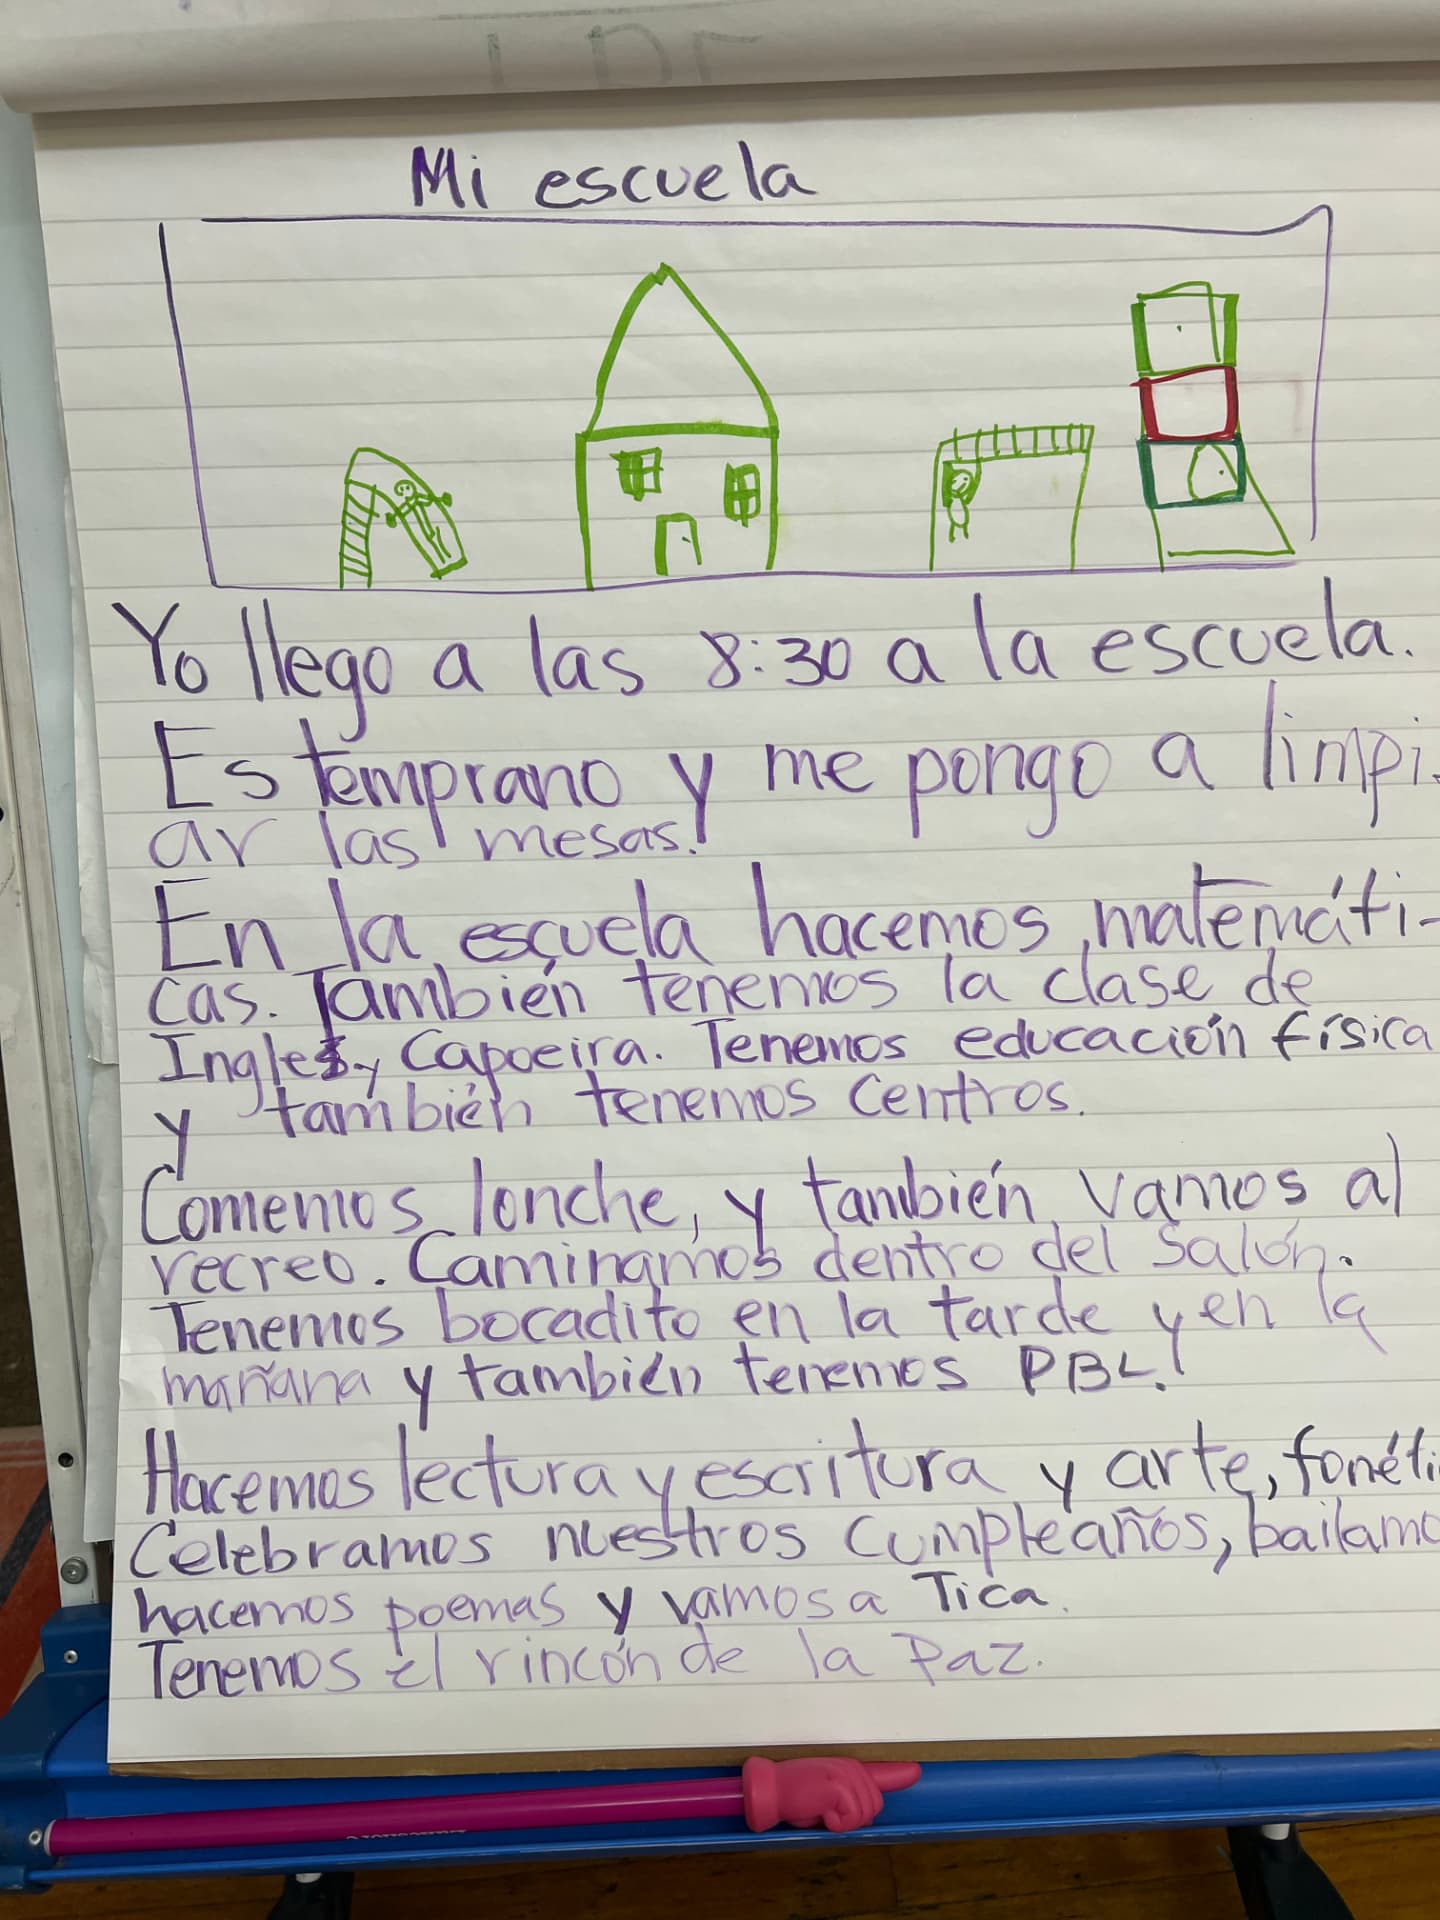 Mi escuela
Yo llego a las 8:30 a la escuela.
Es temprano y me pongo a limpi-
ar las mesas.
En la escuela hacemos matemáti-
cas. También tenemos la clase de
Ingles y Capoeira. Tenemos educación física
y también tenemos centros.
Comemos lonche, y también vamos al
recreo. Caminamos dentro del salón.
Tenemos bocadito en la tarde y en la
mañana y también tenemos PBL.
Hacemos lectura y escritura y arte, fonéti
Celebramos nuestros cumpleaños, bailamo
hacemos poemas y vamos a Tica.
Tenemos el rincón de la Paz.